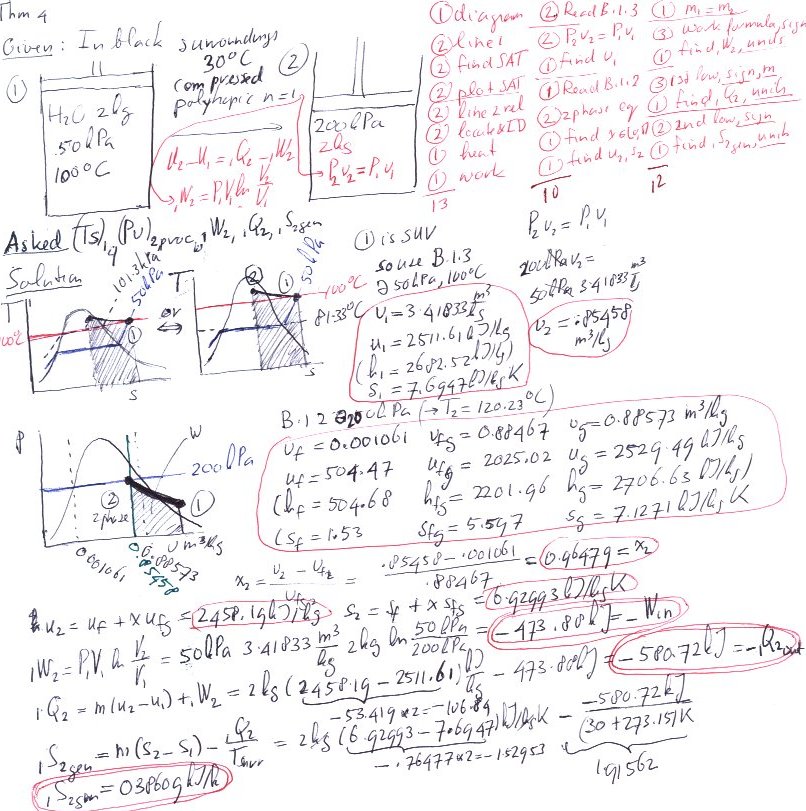 Thm 4
Given: In black surroundings
30°C
compressed
polytropic n=1
①
H₂O 2kg
50kPa
100°C
②
200kPa
2kg
P₂v₂ = P₁v₁
u₂-u₁ = ₁q₂ - ₁w₂
₁W₂ = P₁V₁ ln V₂/V₁
① diagram
② line 1
② find SAT
② plot SAT
② line 2 rel
② locate & ID
① heat
① work
13
② Read B.1.3
② P₂v₂ = P₁v₁
① find v₁
① Read B.1.2
② 2phase eq
① find x
① find u₂, s₂
10
① m₁ = m₂
③ work formula, sign
① find, W₂, units
③ 1st law, sign, m
① find, Q₂, units
② 2nd law, sign
① find, S₂gen, units
12
Asked (Ts), (Pv)₂ proc, ₁W₂, ₁Q₂, ₁S₂gen
Solution
101.3kPa
50kPa
T
100°C
①
s
or
T
②
①
50kPa
100°C
81.33°C
s
① is SUV
so use B.1.3
@ 50kPa, 100°C
v₁ = 3.41833 m³/kg
u₁ = 2511.61 kJ/kg
(h₁ = 2682.52 kJ/kg)
s₁ = 7.6947 kJ/kg K
P₂v₂ = P₁v₁
200kPa v₂ =
50kPa 3.41833 m³/kg
v₂ = .85458
m³/kg
P
W
200kPa
②
①
2phase
v m³/kg
0.001061
0.85458
0.88573
B.1.2 @ 200kPa (→ T₂ = 120.23°C)
vf = 0.001061 vfg = 0.88467 vg = 0.88573 m³/kg
uf = 504.47 ufg = 2025.02 ug = 2529.49 kJ/kg
(hf = 504.68 hfg = 2201.96 hg = 2706.63 kJ/kg)
(sf = 1.53 sfg = 5.597 sg = 7.1271 kJ/kg K
x₂ = v₂ - vf₂ / vfg = .85458 - .001061 / .88467 = 0.96479 = x₂
u₂ = uf + x ufg = 2458.19 kJ/kg s₂ = sf + x sfg = 6.92993 kJ/kg K
₁W₂ = P₁V₁ ln V₂/V₁ = 50kPa 3.41833 m³/kg 2kg ln 50kPa/200kPa = -473.88kJ = -Win
₁Q₂ = m(u₂-u₁) + ₁W₂ = 2kg (2458.19 - 2511.61) kJ/kg - 473.88kJ = -580.72kJ = -₁Q₂out
-53.419 × 2 = -106.84
₁S₂gen = m(s₂-s₁) - ₁Q₂/Tsurr = 2kg (6.92993 - 7.6947) kJ/kg K - -580.72kJ / (30+273.15)K
-.76477 × 2 = -1.52953
1.91562
₁S₂gen = 0.38609 kJ/K